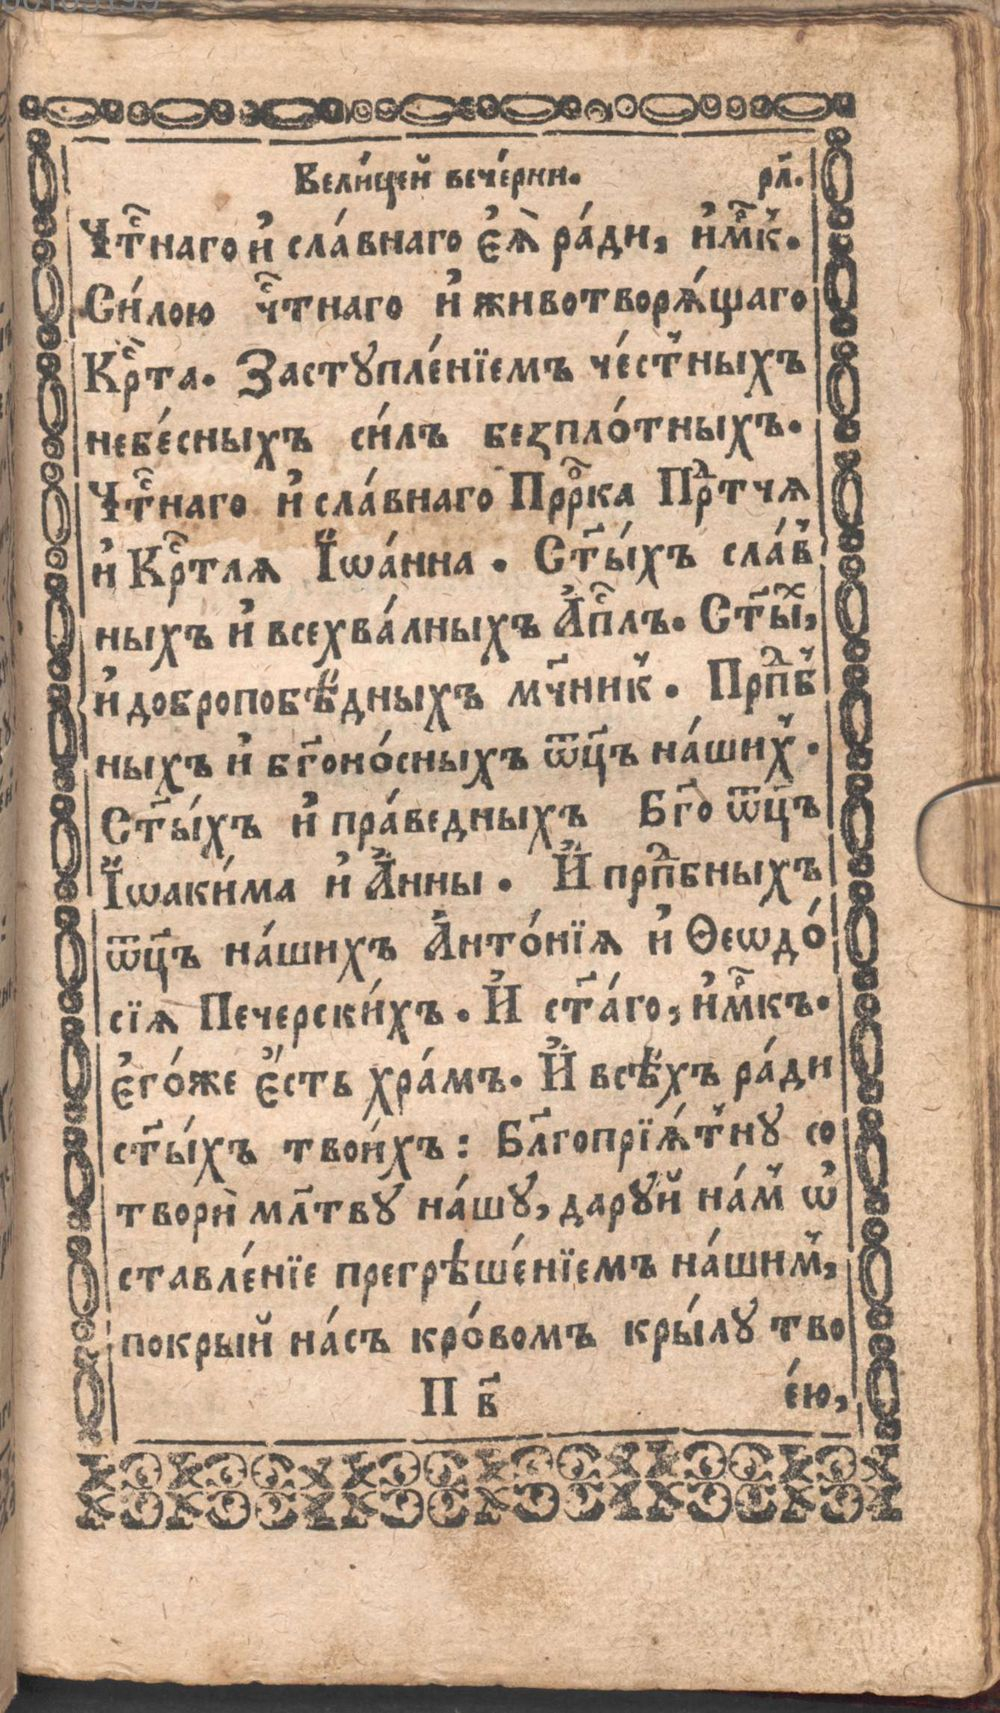 Вели́цей вече́рни. рл҃.
Чⷭ҇тнаго и҆ сла́внаго є҆ѧ̀ ра́ди, и҆мⷬ҇к.
Си́лою чⷭ҇тнаго и҆ животворѧ́щаго
Крⷭ҇та. Заступле́нїемъ че́стныхъ
небе́сныхъ си́лъ безпло́тныхъ.
Чⷭ҇тнаго и҆ сла́внаго Прⷪ҇рка Прⷣтчѧ
и҆ Крⷭ҇тлѧ І҆ѡа́нна. Ст҃ы́хъ сла́в
ныхъ и҆ всехва́лныхъ А҆пⷭ҇лъ. Ст҃ы́ⷯ,
и҆ добропобѣ́дныхъ мч҃ник. Прпⷣб
ныхъ и҆ бг҃оно́сныхъ ѿц҃ъ на́ших.
Ст҃ы́хъ и҆ пра́ведныхъ Бг҃о ѿц҃ъ
І҆ѡаки́ма и҆ А҆́нны. И҆ прпⷣбныхъ
ѿц҃ъ на́шихъ А҆нто́нїѧ и҆ Ѳеѡдо́
сїѧ Печерски́хъ. И҆ ст҃а́го, и҆мⷬ҇къ.
є҆го́же є҆́сть хра́мъ. И҆ всѣ́хъ ра́ди
ст҃ы́хъ твои́хъ: Бл҃гопрїѧ́тнꙋ со
творѝ мл҃твꙋ на́шꙋ, дарꙋ́й на́м ѡ҆
ставле́нїе прегрѣше́нїемъ на́шим,
покры́й на́съ кро́вомъ кры́лꙋ тво
П в҃ е́ю,